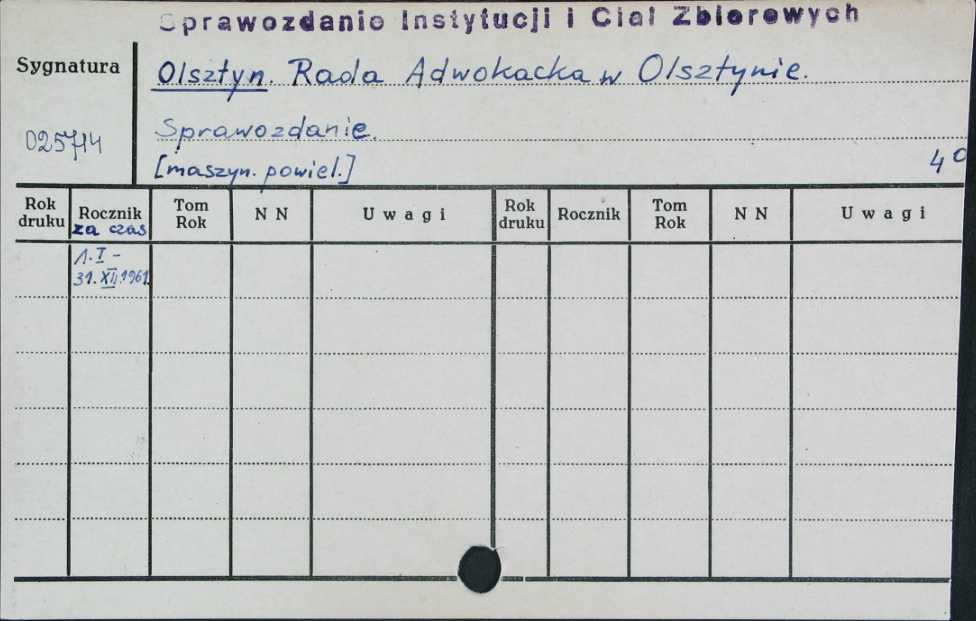 Sprawozdanie Instytucji i Ciał Zbiorowych
Sygnatura
Olsztyn. Rada Adwokacka w Olsztynie.
025714
Sprawozdanie.
[maszyn. powiel.]
4°
Rok druku Rocznik Tom Rok N N Uwagi Rok druku Rocznik Tom Rok N N Uwagi
za czas
1.I –
31.XII.1961